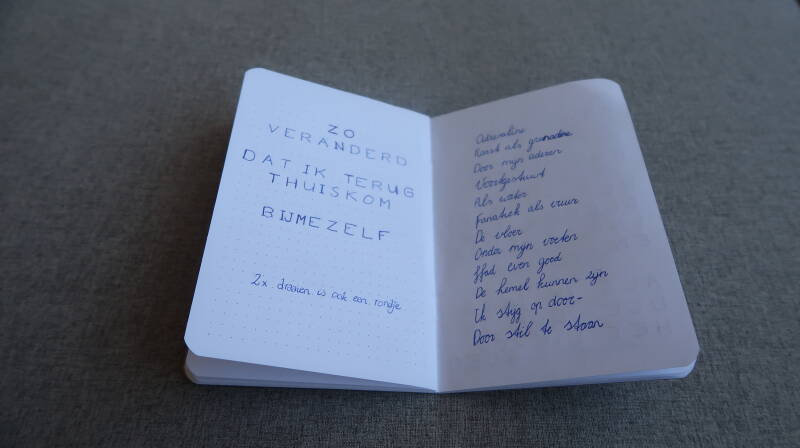 ZO
VERANDERD
DAT IK TERUG
THUISKOM
BIJMEZELF
2x draaien is ook een rondje
Adrenaline
Raast als grenadine
Door mijn aderen
Voortgestuwt
Als water
Fanatiek als vuur
De vloer
Onder mijn voeten
Had even goed
De hemel kunnen zijn
Ik stijg op door-
Door stil te staan